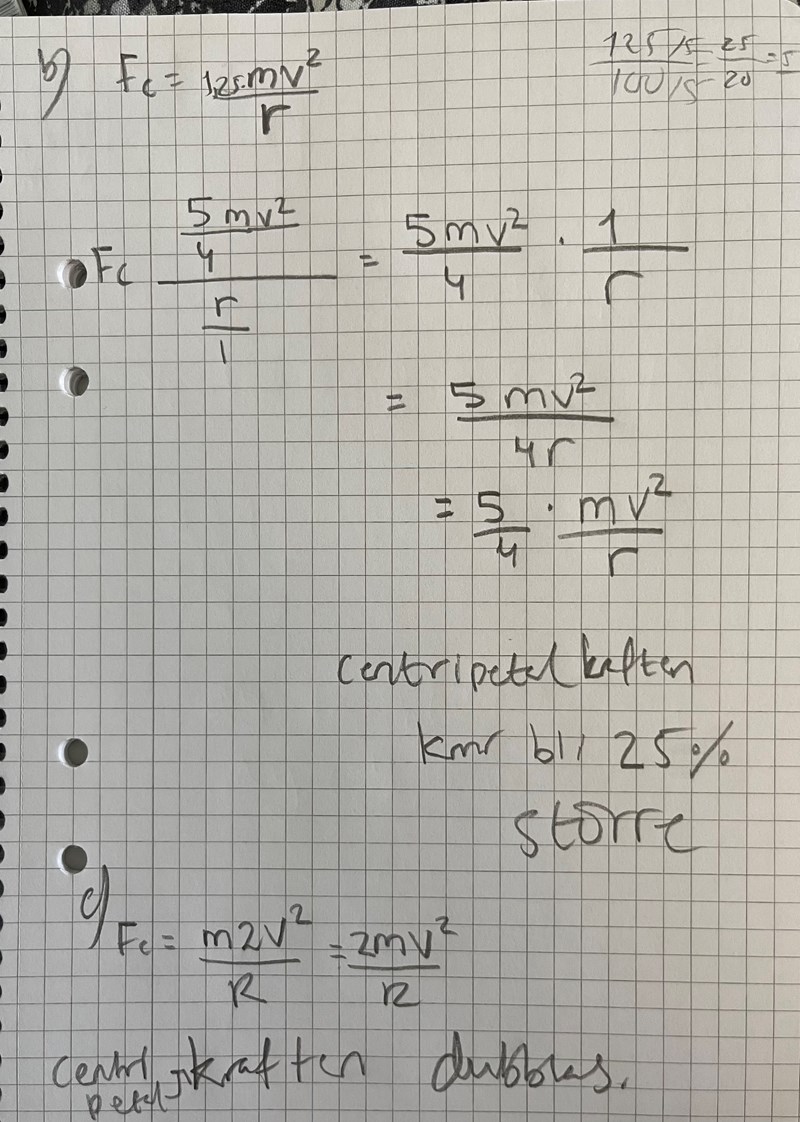 b) Fc = 1,25·mv² / r
125/5 / 100/5 = 25 / 20 = 5
Fc (5mv² / 4) / (r / 1) = 5mv² / 4 · 1 / r
= 5mv² / 4r
= 5 / 4 · mv² / r
centripetalkraften
kmr bli 25%
större
c) Fc = m2v² / R = 2mv² / R
centripetalkraften dubblas.